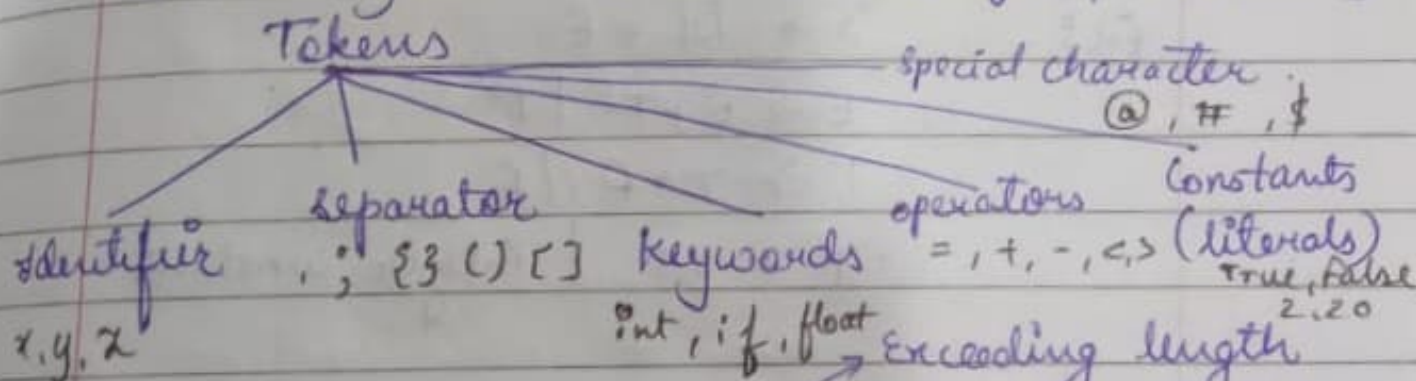 Tokens
special character
@, #, $
Constants
(literals)
True, False
2.20
operators
=, +, -, <, >
Keywords
int, if, float
separator
, ; {} () []
Identifier
x, y, z
Exceeding length